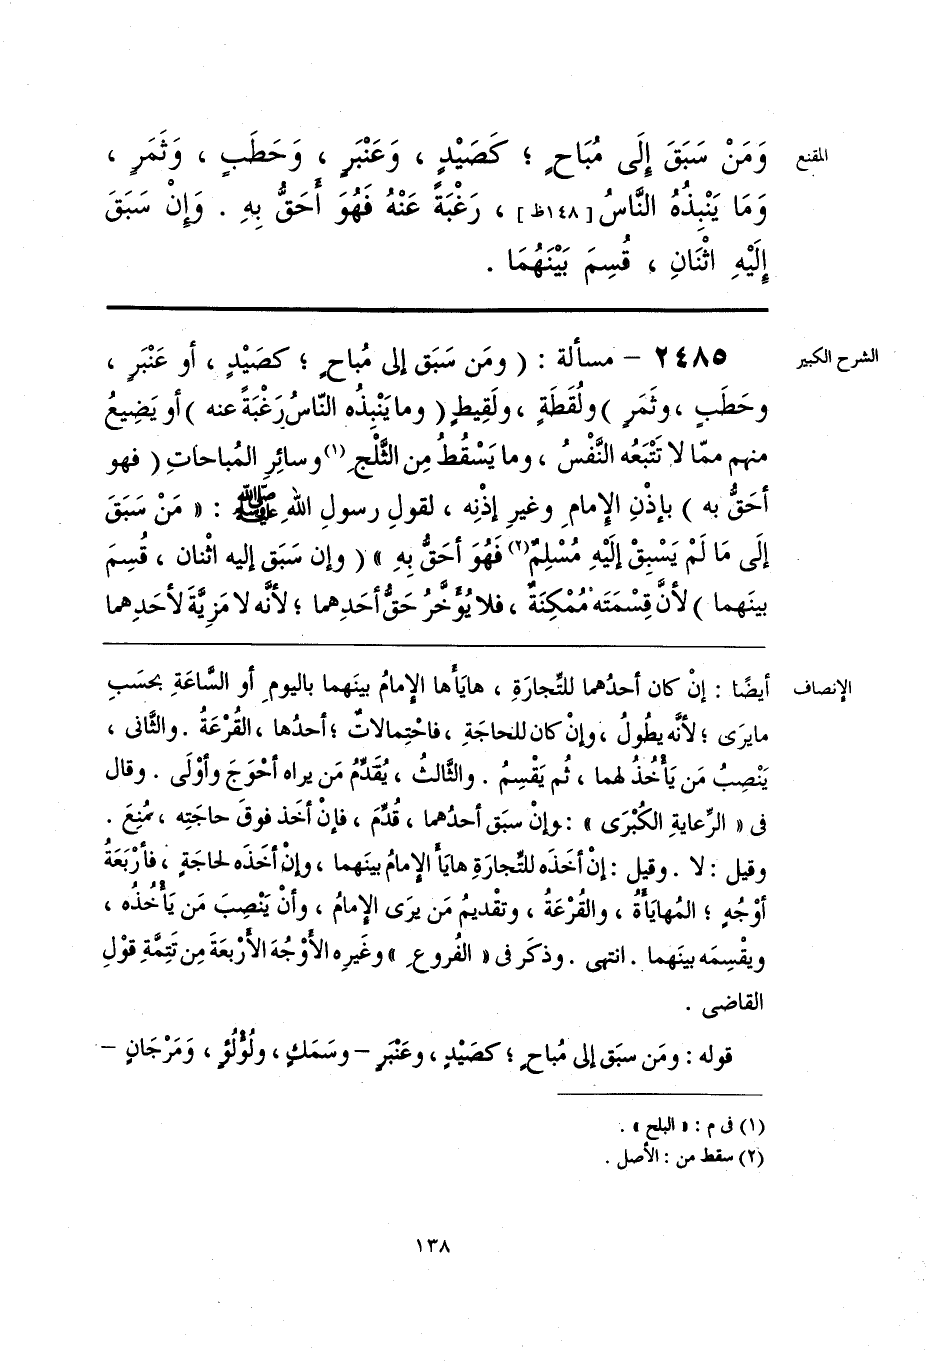 المقنع وَمَنْ سَبَقَ إِلَى مُبَاحٍ ؛ كَصَيْدٍ ، وَعَنْبَرٍ ، وَحَطَبٍ ، وَثَمَرٍ ،
وَمَا يَنْبِذُهُ النَّاسُ [ ١٤٨ظ ] ، رَغْبَةً عَنْهُ فَهُوَ أَحَقُّ بِهِ . وَإِنْ سَبَقَ
إِلَيْهِ اثْنَانِ ، قُسِمَ بَيْنَهُمَا .
الشرح الكبير ٢٤٨٥ – مسألة : ( ومَن سَبَق إلى مُباحٍ ؛ كصَيْدٍ ، أو عَنْبَرٍ ،
وحَطَبٍ ، وثَمَرٍ ) ولُقَطَةٍ ، ولَقِيطٍ ( وما يَنْبِذُه النّاسُ رَغْبَةً عنه ) أو يَضِيعُ
منهم ممّا لا تَتْبَعُه النَّفْسُ ، وما يَسْقُطُ مِن الثَّلْجِ (١) وسائِرِ المُباحاتِ ( فهو
أحَقُّ به ) بإذْنِ الإِمامِ وغيرِ إذْنِه ، لقولِ رسولِ اللهِ ﷺ : « مَنْ سَبَقَ
إلَى مَا لَمْ يَسْبِقْ إلَيْهِ مُسْلِمٌ (٢) فَهُوَ أحَقُّ بِهِ » ( وإن سَبَق إليه اثْنان ، قُسِمَ
بينَهما ) لأنَّ قِسْمَتَه مُمْكِنَةٌ ، فلا يُؤَخَّرُ حَقُّ أحَدِهما ؛ لأنَّه لا مَزِيَّةَ لأحَدِهما
الإنصاف أيضًا : إنْ كان أحدُهما للتِّجارَةِ ، هايَأَها الإِمامُ بينَهما باليومِ أو السَّاعَةِ بحسَبِ
ما يرَى ؛ لأنَّه يطُولُ ، وإنْ كان للحاجَةِ ، فاحْتِمالاتٌ ؛ أحدُها ، القُرْعَةُ . والثَّانى ،
يَنْصِبُ مَن يَأْخُذُ لهما ، ثُم يَقْسِمُ . والثَّالثُ ، يُقَدَّمُ مَن يراه أحْوَجَ وأوْلَى . وقال
فى « الرِّعايةِ الكُبْرَى » : وإنْ سبَق أحدُهما ، قُدِّمَ ، فإنْ أخَذ فوقَ حاجَتِه ، مُنِعَ .
وقيل : لا . وقيل : إنْ أخَذَه للتِّجارَةِ هايَأَ الإِمامُ بينَهما ، وإنْ أخَذَه لحاجَةٍ ، فأرْبَعَةُ
أوْجُهٍ ؛ المُهايَأَةُ ، والقُرْعَةُ ، وتقْديمُ مَن يرَى الإِمامُ ، وأنْ يَنْصِبَ مَن يَأْخُذُه ،
ويقْسِمَه بينَهما . انتهى . وذكَر فى « الفُروعِ » وغيرِه الأَوْجُهَ الأَرْبعَةَ مِن تَتِمَّةِ قوْلِ
القاضى .
قوله : ومَن سبَق إلى مُباحٍ ؛ كصَيْدٍ ، وعَنْبَرٍ – وسَمَكٍ ، ولُؤْلُؤٍ ، وَمَرْجَانٍ –
(١) فى م : « البلح » .
(٢) سقط من : الأصل .
١٣٨